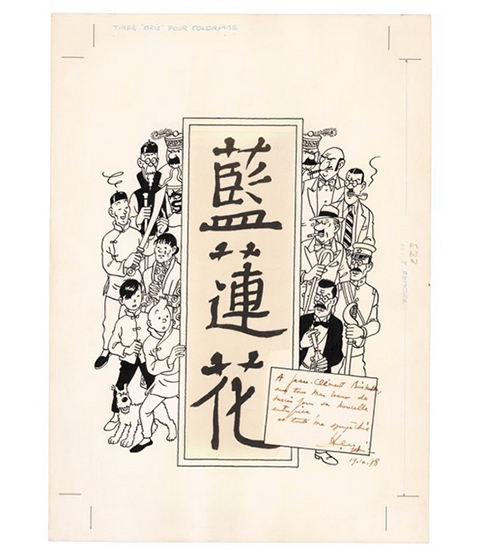 TIRER "GRIS" POUR COLORIAGE
藍
蓮
花
A Jean-Clément
avec tous mes vœux de
succès pour sa nouvelle
et toute ma sympathie
Hergé